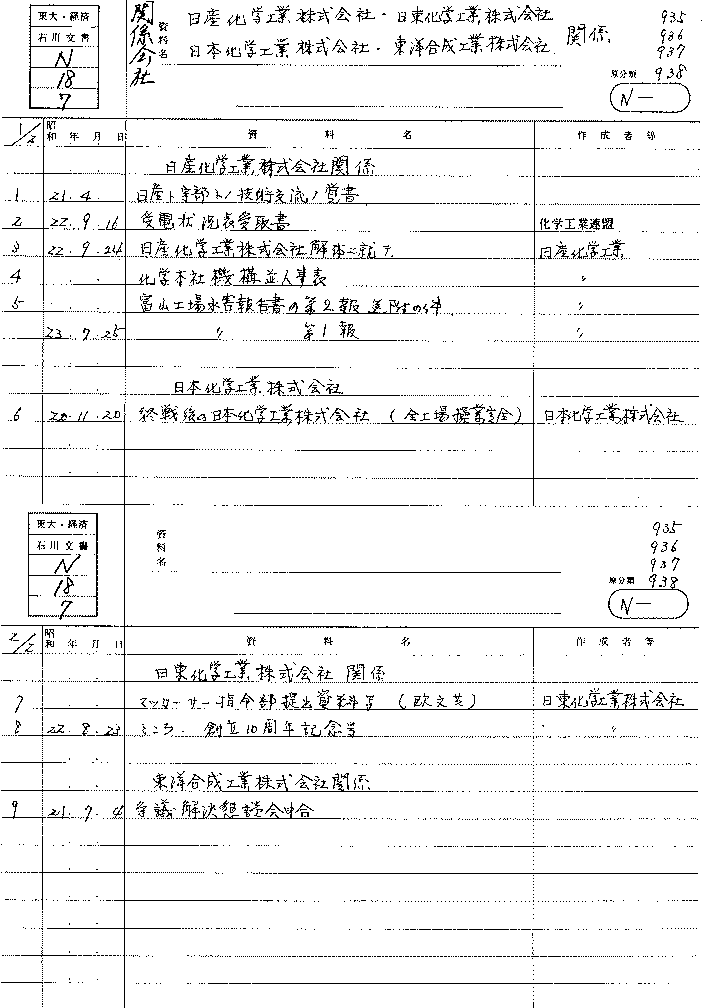 東大・経済
石川文書
N
18
7
関係会社
資料名
日産化学工業株式会社・日東化学工業株式会社
日本化学工業株式会社・東洋合成工業株式会社
関係
935
936
937
原分類 938
N-
1/2 昭和 年 月 日 資 料 名 作 成 者 等
日産化学工業株式会社関係
1 21. 4. 日産ト宇部トノ技術交流ノ覚書
2 22. 9. 16 受電状況表受取書 化学工業連盟
3 22. 9. 24 日産化学工業株式会社解体ニ就テ 日産化学工業
4 化学本社機構並人事表 〃
5 富山工場水害報告書の第2報送附の件 〃
23. 7. 25 〃 第1報 〃
日本化学工業株式会社
6 20. 11. 20 終戦後の日本化学工業株式会社 (全工場操業 日本化学工業株式会社
東大・経済
石川文書
N
18
7
資料名
935
936
937
原分類 938
N-
2/2 昭和 年 月 日 資 料 名 作 成 者 等
日東化学工業株式会社 関係
7 マッカーサー指令部提出資料等 (欧文共) 日東化学工業株式会社
8 22. 8. 23 創立10周年記念号 〃
東洋合成工業株式会社関係
9 21. 7. 4 争議解決懇談会申合